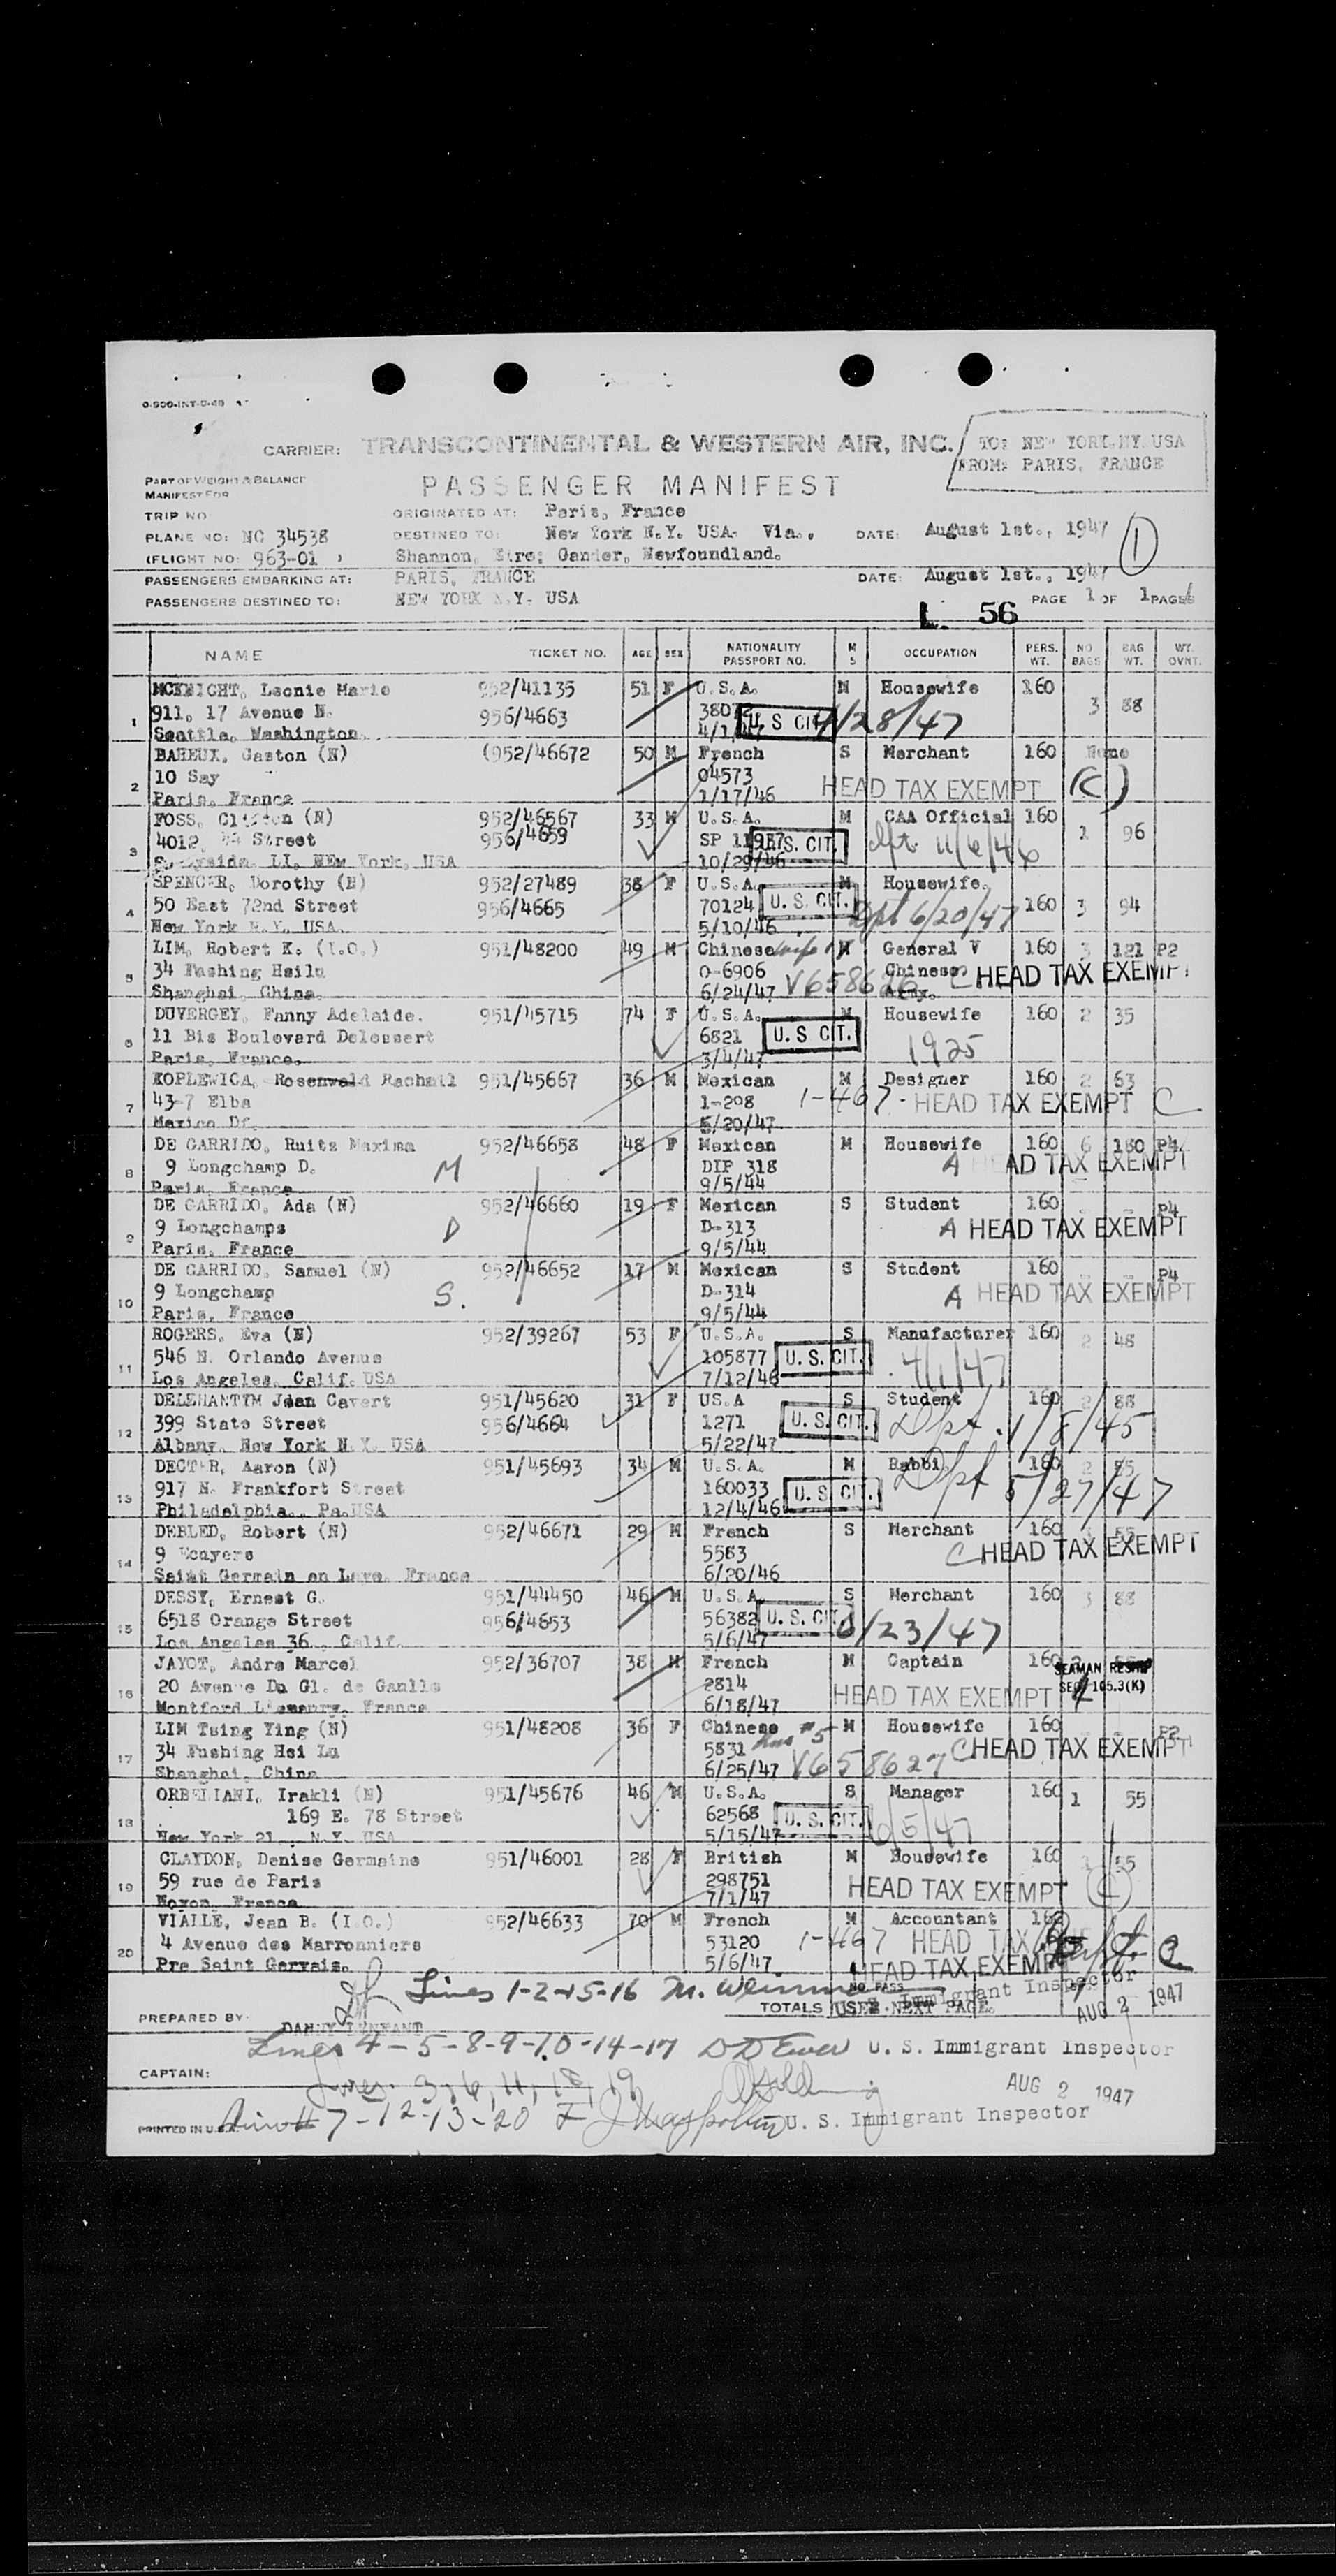 CARRIER: TRANSCONTINENTAL & WESTERN AIR, INC.
TO: NEW YORK.NY. USA
FROM: PARIS, FRANCE
PART OF WEIGHT & BALANCE
MANIFEST FOR
PASSENGER MANIFEST
TRIP NO
ORIGINATED AT: Paris, France
PLANE NO: NC 34538
DESTINED TO: New York N.Y. USA. Via.,
DATE: August 1st., 1947
1
(FLIGHT NO: 963-01 )
Shannon, Eire; Gander, Newfoundland.
PASSENGERS EMBARKING AT: PARIS, FRANCE
DATE: August 1st., 1947
PASSENGERS DESTINED TO: NEW YORK N.Y. USA
PAGE 1 OF 1 PAGES
L. 56
NAME TICKET NO. AGE SEX NATIONALITY PASSPORT NO. M S OCCUPATION PERS. WT. NO. BAGS BAG WT. WT. OVNT.
MCKNIGHT, Leonie Marie 952/41135 51 F U.S.A. M Housewife 160
1 911, 17 Avenue N. 956/4663 3 88
Seattle, Washington. 4/1/47 U S CIT 4/28/47
BAHEUX, Gaston (N) (952/46672 50 M French S Merchant 160 None
2 10 Say 04573 HEAD TAX EXEMPT (C)
Paris, France 1/17/46
FOSS, Clifton (N) 952/46567 33 M U.S.A. M CAA Official 160
3 4012, Street 956/4659 SP 11987 U.S. CIT. dpt. 11/6/46 1 96
LI, NEw York, USA 10/29/46
SPENCER, Dorothy (N) 952/27489 38 F U.S.A. M Housewife.
4 50 East 72nd Street 956/4665 70124 U. S. CIT. Dpt 6/20/47 160 3 94
New York N.Y. USA. 5/10/46
LIM, Robert K. (I.O.) 951/48200 49 M Chinese wife 17 M General V 160 3 121 P2
5 34 Fushing Hsilu 0-6906 Chinese C HEAD TAX EXEMPT
Shanghai, China. 6/24/47 V658626 Army.
DUVERGEY, Fanny Adelaide. 951/45715 74 F U.S.A. M Housewife 160 2 35
6 11 Bis Boulevard Delessert 6821 U. S CIT. 1925
Paris, France. 3/4/47
KOPLEWICA, Rosenwald Rachail 951/45667 36 M Mexican M Designer 160 2 63
7 43-7 Elba 1-208 1-467- HEAD TAX EXEMPT C
Mexico Df. 5/20/47
DE GARRIDO, Ruitz Maxima 952/46658 48 F Mexican M Housewife 160 6 180 P4
8 9 Longchamp D. M DIP 318 A HEAD TAX EXEMPT
Paris, France 9/5/44
DE GARRIDO, Ada (N) 952/46660 19 F Mexican S Student 160 P4
9 9 Longchamps D D-313 A HEAD TAX EXEMPT
Paris, France 9/5/44
DE GARRIDO, Samuel (N) 952/46652 17 M Mexican S Student 160 P4
10 9 Longchamp S. D-314 A HEAD TAX EXEMPT
Paris, France 9/5/44
ROGERS, Eva (N) 952/39267 53 F U.S.A. S Manufacturer 160 2 48
11 546 N. Orlando Avenue 105877 U. S. CIT. 4/1/47
Los Angeles, Calif. USA 7/12/46
DELEHANTYM Jean Cavert 951/45620 31 F US.A S Student 160 2 88
12 399 State Street 956/4664 1271 U. S. CIT. Dpt. 1/8/45
Albany, New York N.Y. USA 5/22/47
DECTER, Aaron (N) 951/45693 34 M U.S.A. M Rabbi 160 2 55
13 917 N. Frankfort Street 160033 U. S. CIT. Dpt 5/27/47
Philadelphia., Pa.USA 12/4/46
DEBLED, Robert (N) 952/46671 29 M French S Merchant 160 55
14 9 Ecuyers 5583 C HEAD TAX EXEMPT
Saint Germain en Laye, France 6/20/46
DESSY, Ernest G. 951/44450 46 M U.S.A. S Merchant 160 3 88
15 6518 Orange Street 956/4653 56382 U. S. CIT. 6/23/47
Los Angeles 36., Calif. 5/6/47
JAYOT, Andre Marcel 952/36707 38 M French M Captain 160 2
SEAMAN
16 20 Avenue Du Gl. de Gaulle 2814 HEAD TAX EXEMPT SEC. 105.3(K)
Montford France 6/18/47
LIM Tsing Ying (N) 951/48208 36 F Chinese #5 M Housewife 160 P2
17 34 Fushing Hsi Lu 5831 C HEAD TAX EXEMPT
Shanghai, China 6/25/47 V658627
ORBELIANI, Irakli (N) 951/45676 46 M U.S.A. S Manager 160 1 55
18 169 E. 78 Street 62568 U. S. CIT. 6/5/47
New York 21., N.Y. USA 5/15/47
CLAYDON, Denise Germaine 951/46001 28 F British M Housewife 160 55
19 59 rue de Paris 298751 HEAD TAX EXEMPT (C)
Noyon, France 7/1/47
VIALLE, Jean B. (I.O.) 952/46633 70 M French M Accountant 160
20 4 Avenue des Marronniers 53120 1-467 HEAD TAX
Pre Saint Gervais. 5/6/47 HEAD TAX EXEMPT C
Lines 1-2-15-16 Immigrant Inspector
TOTALS USE NEXT PAGE.
AUG 2 1947
PREPARED BY: DANNY
Lines 4-5-8-9-10-14-17 U. S. Immigrant Inspector
CAPTAIN:
Lines. 3, 6, 11, 18, 19
AUG 2 1947
PRINTED IN U.S.A. 7-12-13-20 U. S. Immigrant Inspector